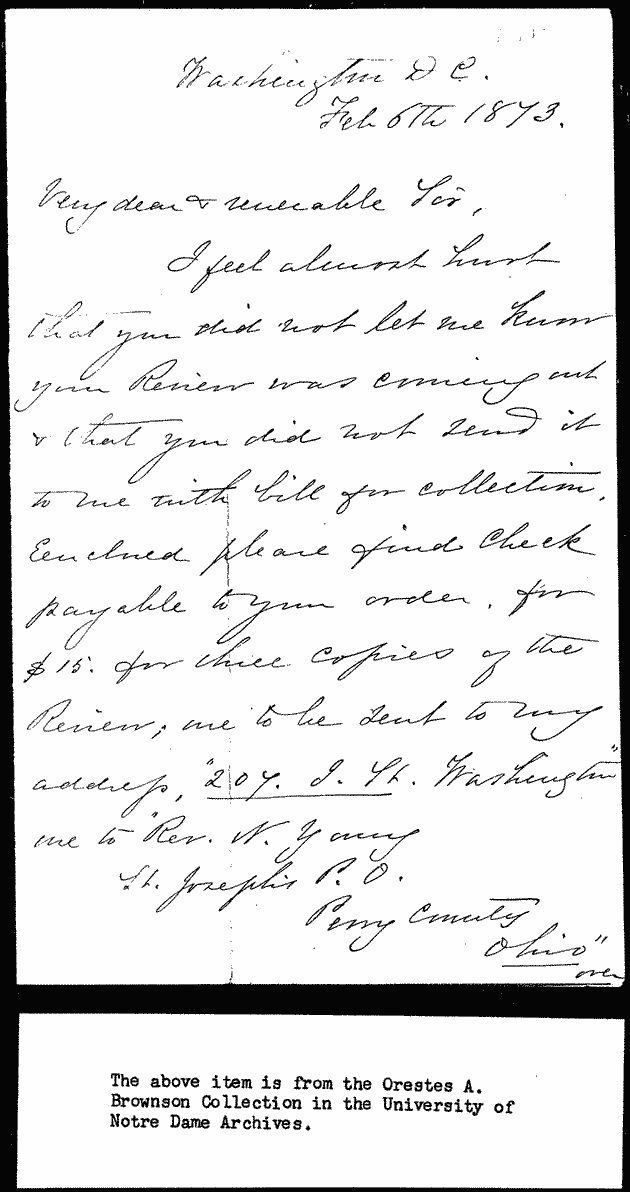 Washington D C.
Feb 6th 1873.
Very dear & venerable Sir,
I feel almost hurt
that you did not let me know
your Review was coming out
& that you did not send it
to me with bill for collection.
Enclosed please find check
payable to your order, for
$15. for three copies of the
Review; one to be sent to my
address, "207. I. St. Washington"
one to "Rev. N. Young
St. Joseph's P. O.
Perry County
Ohio"
over
The above item is from the Orestes A.
Brownson Collection in the University of
Notre Dame Archives.